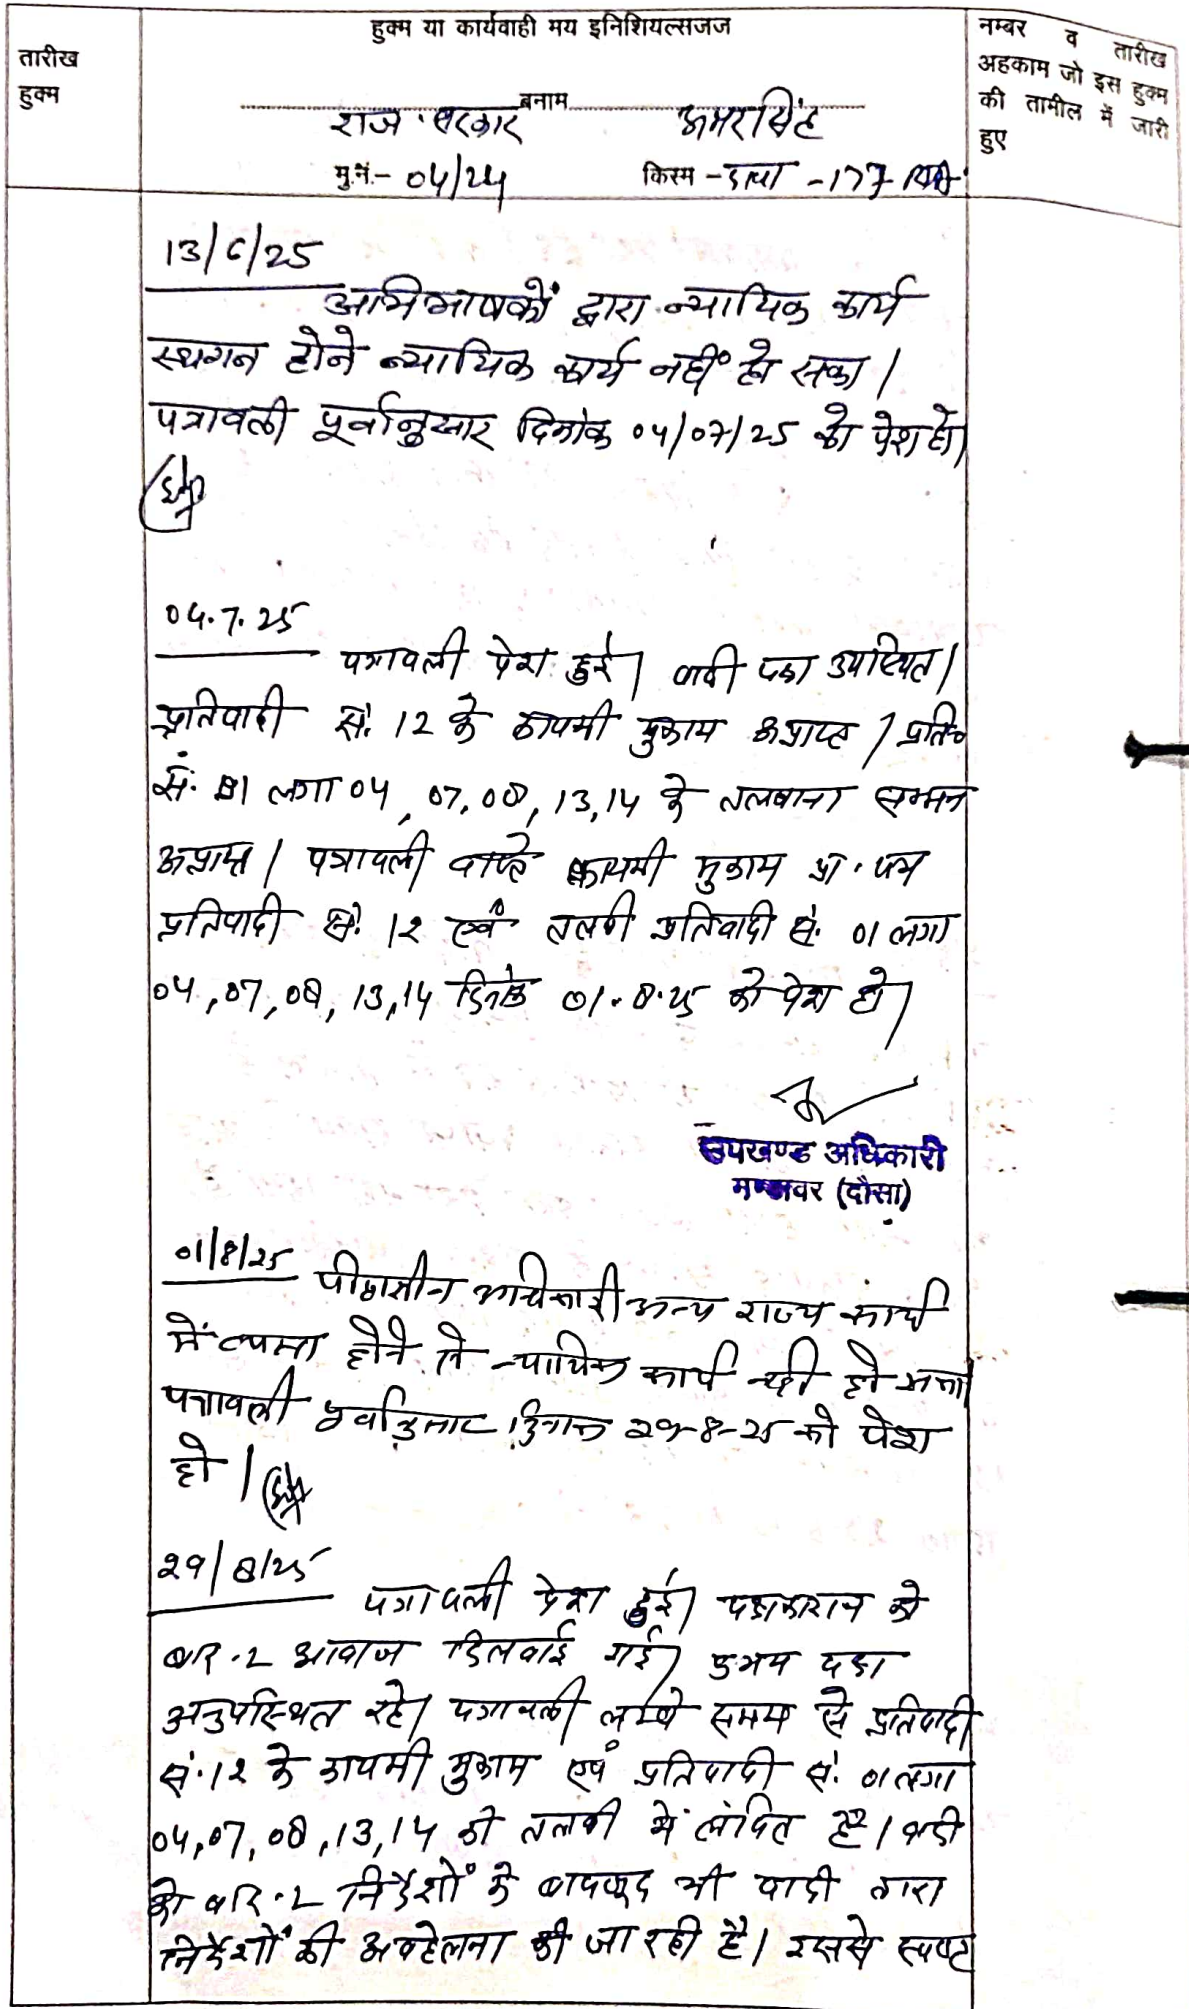 तारीख
हुक्म
हुक्म या कार्यवाही मय इनिशियल्सजज
बनाम
राज. सरकार अमरसिंह
मु.नं.- 04/24 किस्म - दावा - 177
नम्बर व तारीख
अहकाम जो इस हुक्म
की तामील में जारी
हुए
13/6/25
अभिभाषकों द्वारा न्यायिक कार्य
स्थगन होने न्यायिक कार्य नहीं हो सका।
पत्रावली पूर्वानुसार दिनांक 04/07/25 को पेश हो।
04.7.25
पत्रावली पेश हुई। वादी पक्ष उपस्थित।
प्रतिवादी सं. 12 के कायमी मुकाम अप्राप्त। प्रति०
सं. 01 लगा 04, 07, 08, 13, 14 के तलबाना सम्मन
अप्राप्त। पत्रावली वास्ते कायमी मुकाम प्रा. पत्र
प्रतिवादी सं. 12 एवं तलबी प्रतिवादी सं. 01 लगा
04, 07, 08, 13, 14 दिनांक 01.8.25 को पेश हो।
उपखण्ड अधिकारी
मण्डावर (दौसा)
01/8/25 पीठासीन अधिकारी अन्य राज्य कार्य
में व्यस्त होने से न्यायिक कार्य नही हो सका
पत्रावली पूर्वानुसार दिनांक 29-8-25 को पेश
हो।
29/8/25
पत्रावली पेश हुई। पक्षकारान को
बार-2 आवाज दिलवाई गई। उभय पक्ष
अनुपस्थित रहे। पत्रावली लम्बे समय से प्रतिवादी
सं. 12 के कायमी मुकाम एवं प्रतिवादी सं. 01 लगा
04, 07, 08, 13, 14 की तलबी में लंबित है। वादी
को बार-2 निर्देशों के बावजूद भी वादी द्वारा
निर्देशों की अवहेलना की जा रही है। इससे स्पष्ट